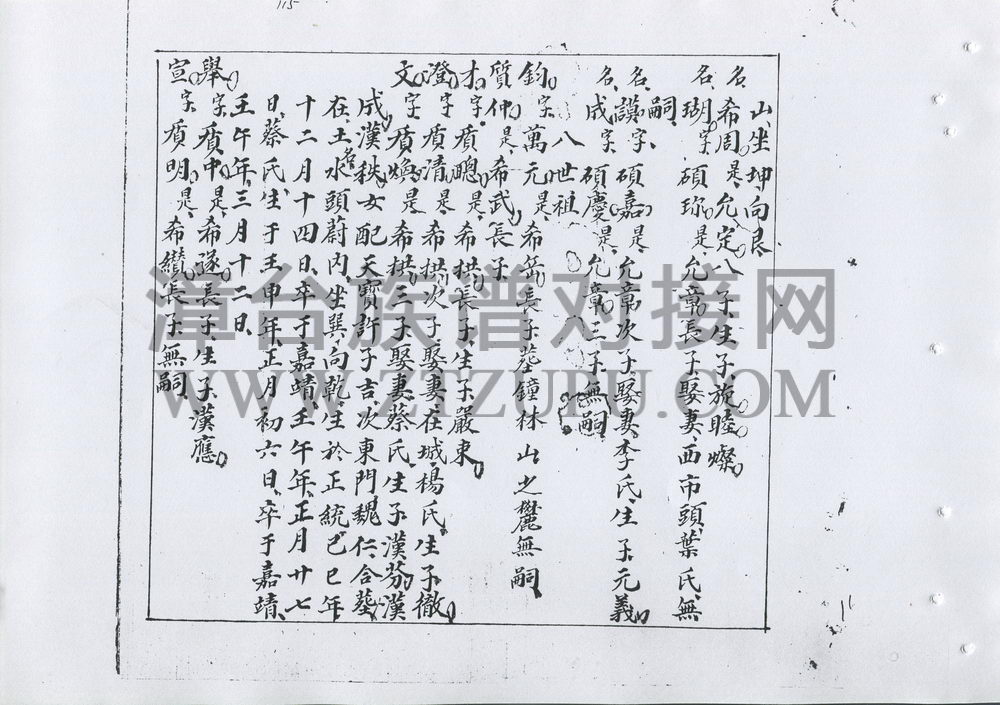 115
山坐坤向艮
名希周是允定八子生子旋睦燦
名瑚字碩珎是允章長子娶妻西市頭葉氏無
嗣
名謨字碩嘉是允章次子娶妻李氏生子元義
名成字碩慶是允章三子無嗣
八世祖
鈞字萬元是希岳長子葬鐘林山之麓無嗣
質仲是希武長子
才字質聰是希拱長子生子嚴東
澄字質清是希拱次子娶妻在城楊氏生子徹
文字質煥是希拱三子娶妻蔡氏生子漢芬漢
成漢秩女配天寶許子吉次東門魏仁合葬
在土名水頭蔚內坐巽向乾生於正統己巳年
十二月十四日卒于嘉靖壬午年正月廿七
日蔡氏生于壬申年正月初六日卒于嘉靖
壬午年三月十二日
舉字質中是希遂長子生子漢應
宣字質明是希纘長子無嗣
漳台族谱对接网
WWW.ZTZUPU.COM